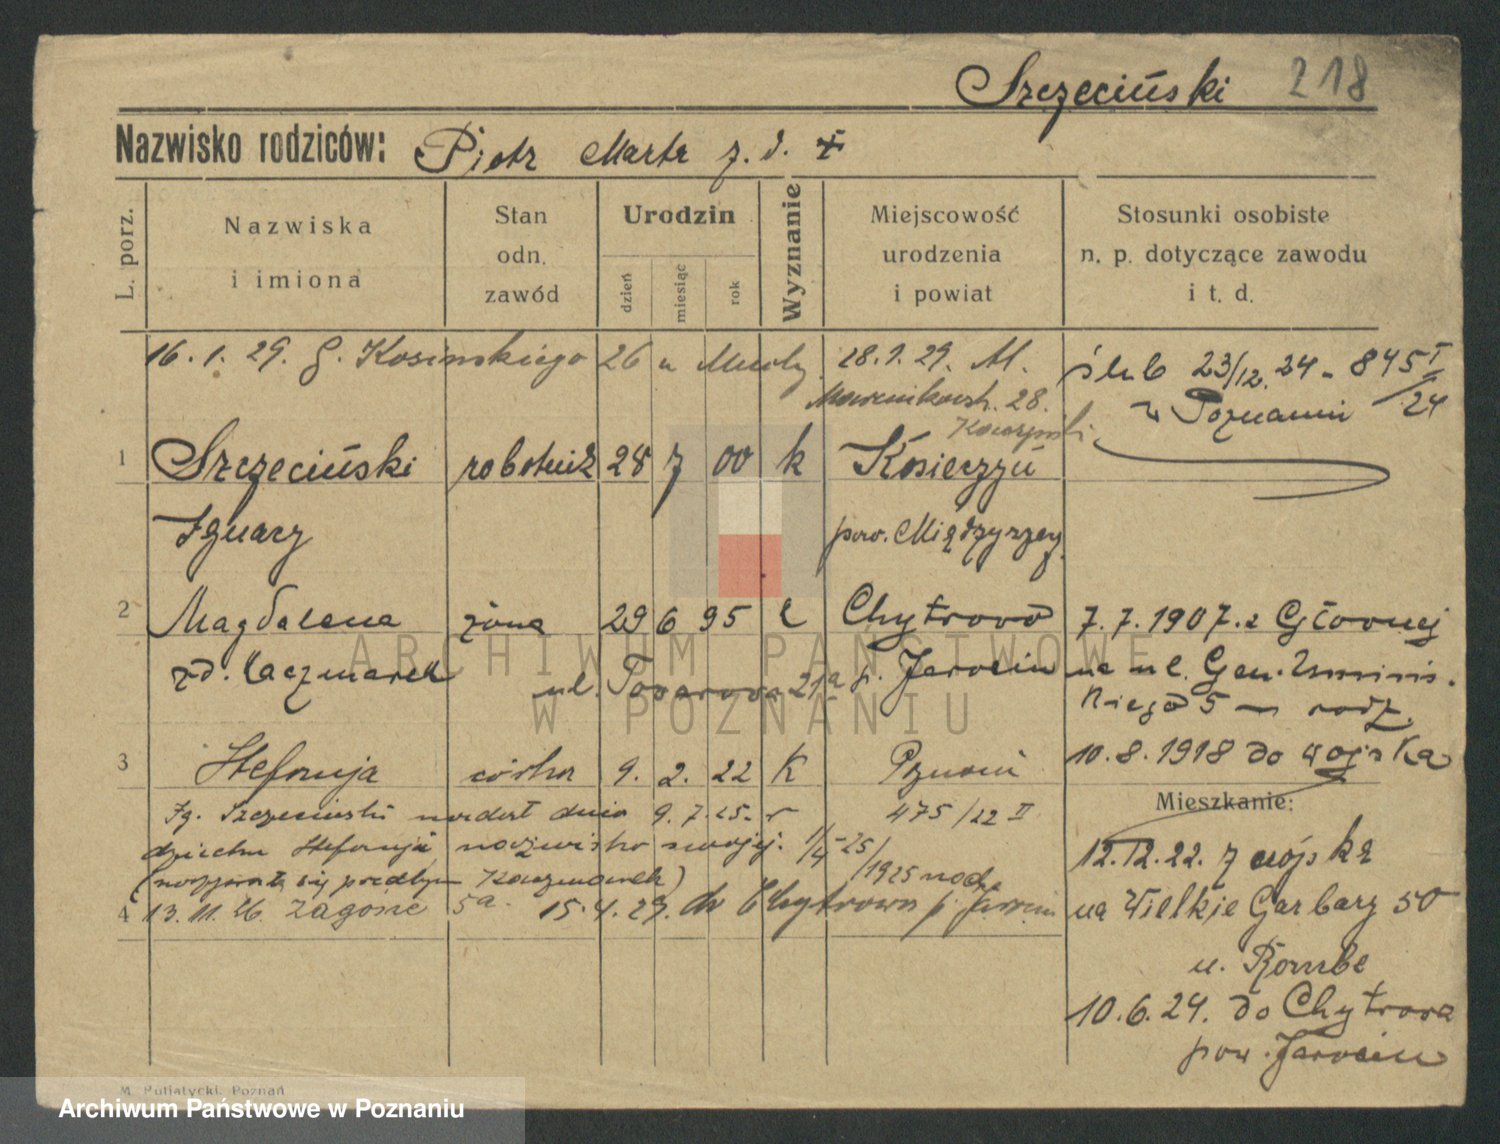 Szczeciński 218
Nazwisko rodziców: Piotr Marta z. d. +
L. porz.
Nazwiska
i imiona
Stan
odn.
zawód
Urodzin
dzień
miesiąc
rok
Wyznanie
Miejscowość
urodzenia
i powiat
Stosunki osobiste
n. p. dotyczące zawodu
i t. d.
16. 1. 29. G. Kosinskiego 26 u
28. 1. 29. M.
28.
ślub 23/12. 24 - 845 I/24
w Poznaniu
1 Szczeciński robotnik 28 7 00 k Kosieczyń
Ignacy pow. Międzyrzecz
2 Magdalena żona 29 6 95 k Chytrowo
zd. Kaczmarek p. Jarocin
ul. Towarowa 21a
7. 7. 1907. z Głównej
na ul. Gen. Umińs.
kiego 5 rodz.
10. 8. 1918 do wojska
3 Stefanja córka 9. 2. 22 K Poznań
475/22 II
Ig. Szczeciński nadał dnia 9. 7. 25. r
dziecku Stefanja nazwisko swoje. 1/4-25/
/1925 nad.
(nazywała się przedtym Kaczmarek)
4 13. 11. 26. Zagórze 5a. 15. 4. 29. do Chytrowa p. Jarocin
Mieszkanie:
12. 12. 22. z wojska
na Wielkie Garbary 50
u. Rombe
10. 6. 24. do Chytrowa
pow. Jarocin
M. Putiatycki, Poznań
ARCHIWUM PAŃSTWOWE
W POZNANIU
Archiwum Państwowe w Poznaniu